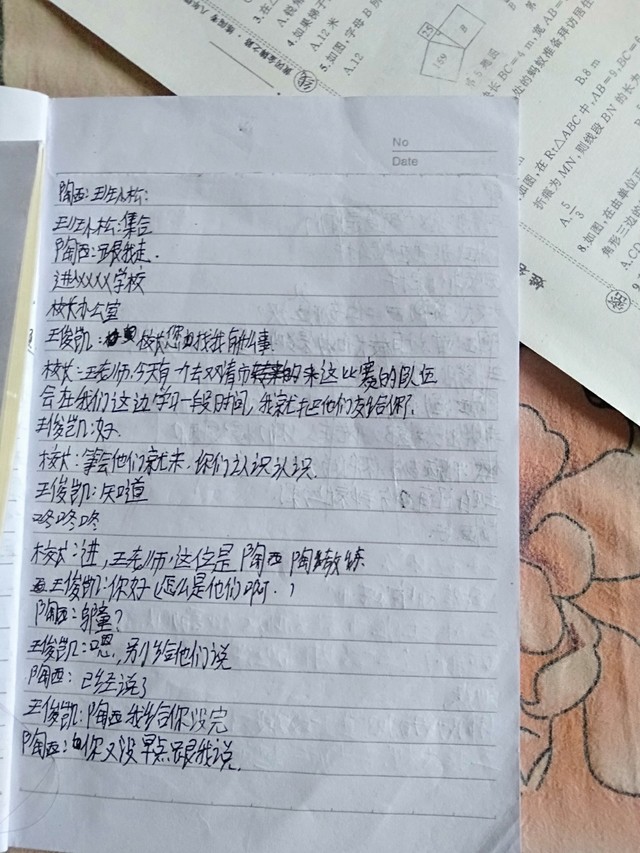 No
Date
陶西:班小松:
班小松:集合
陶西:跟我走.
进入XXXX学校
校长办公室
王俊凯:校长您找我有什么事.
校长:王老师,今天有一个去双清市来这比赛的队伍
会在我们这边学习一段时间,我就把他们交给你了.
王俊凯:好.
校长:等会他们就来.你们认识认识.
王俊凯:知道
咚咚咚
校长:进,王老师,这位是陶西 陶教练
王俊凯:你好(怎么是他们啊.)
陶西:邬童?
王俊凯:嗯,别给他们说
陶西:已经说了
王俊凯:陶西我给你没完
陶西:你又没早点跟我说.
A.12 米
5.如图,字母 B 所
A.12
BC=4 m,宽 AB=
B.8 m
△ABC 中,AB=9,BC=6
折痕为 MN,则线段 BN 的长
A. 5/3
8.如图,在由单位正
角形三边的